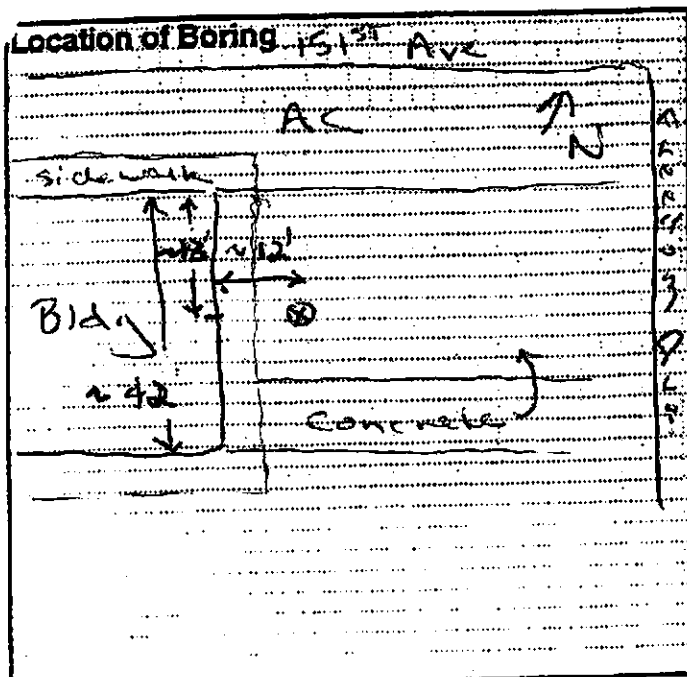 Location of Boring 151st Ave
AC
N
sidewalk
~12'
Bldg
~42
Concrete